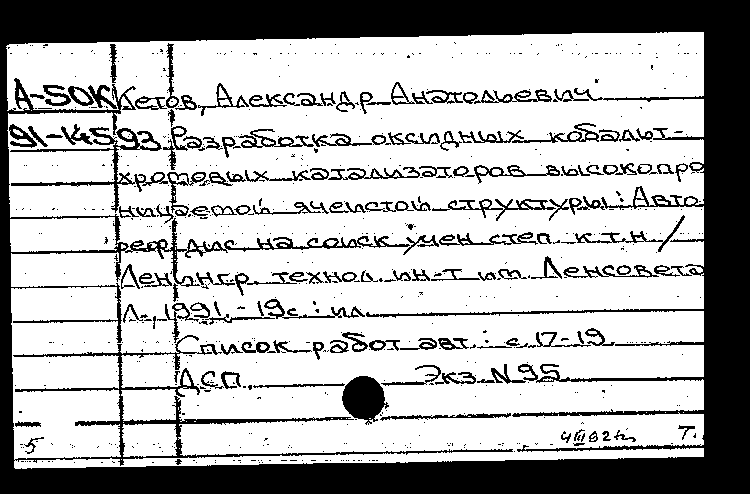 А-50К Кетов, Александр Анатольевич
91-14593 Разработка оксидных кобальт-
хромовых катализаторов высокопро
ницаемой ячеистой структуры: Авто
реф. дис. на соиск учен степ. к.т.н. /
Ленингр. технол. ин-т им. Ленсовета
Л., 1991. - 19с. : ил.
Список работ авт. : с. 17-19
ДСП. Экз. N 95
5 Т.